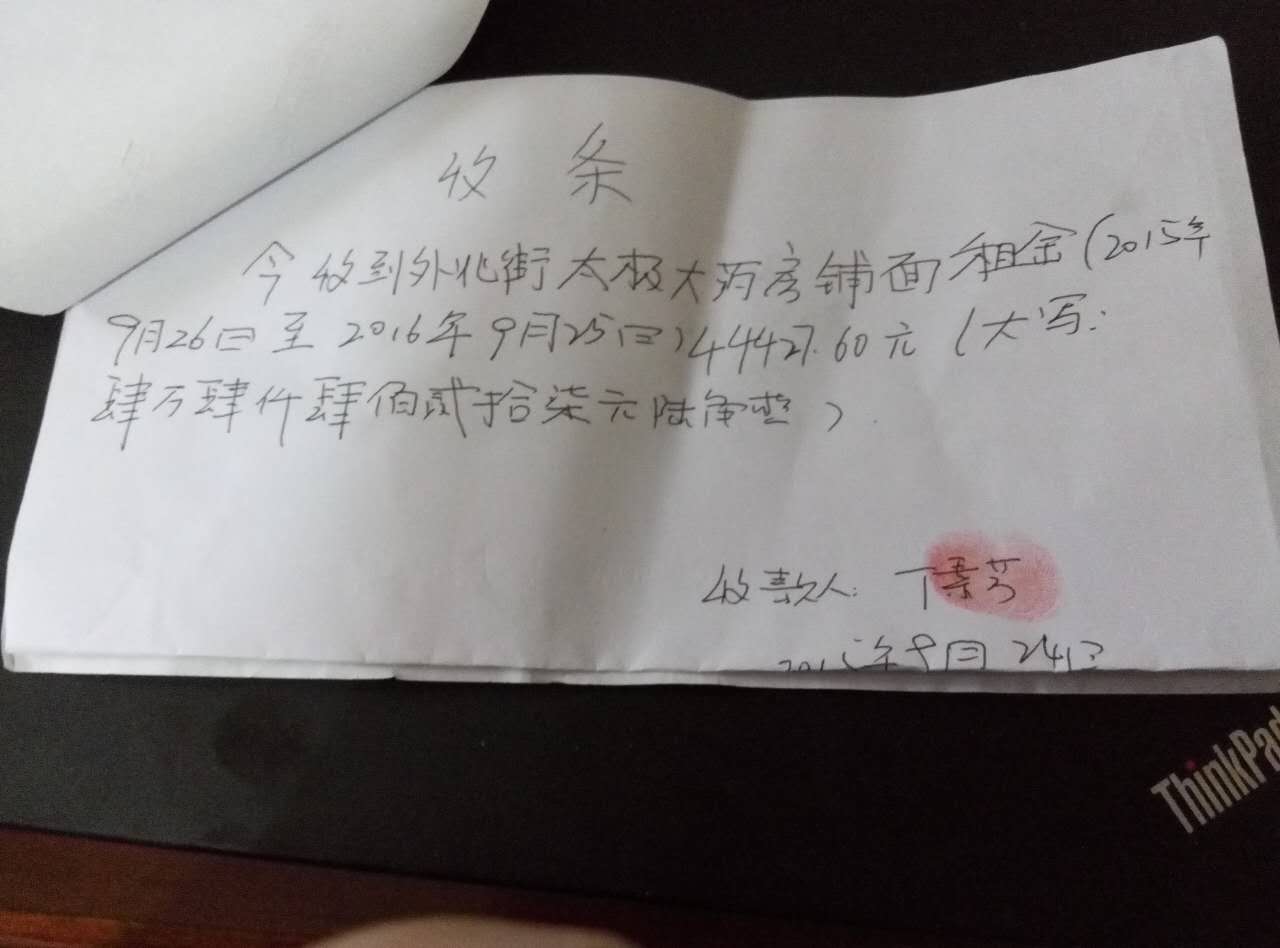 收条
今收到外北街太极大药房铺面租金(2015年
9月26日至2016年9月25日)44427.60元(大写:
肆万肆仟肆佰贰拾柒元陆角整)
收款人: 丁景芳
2015年9月24日
ThinkPad